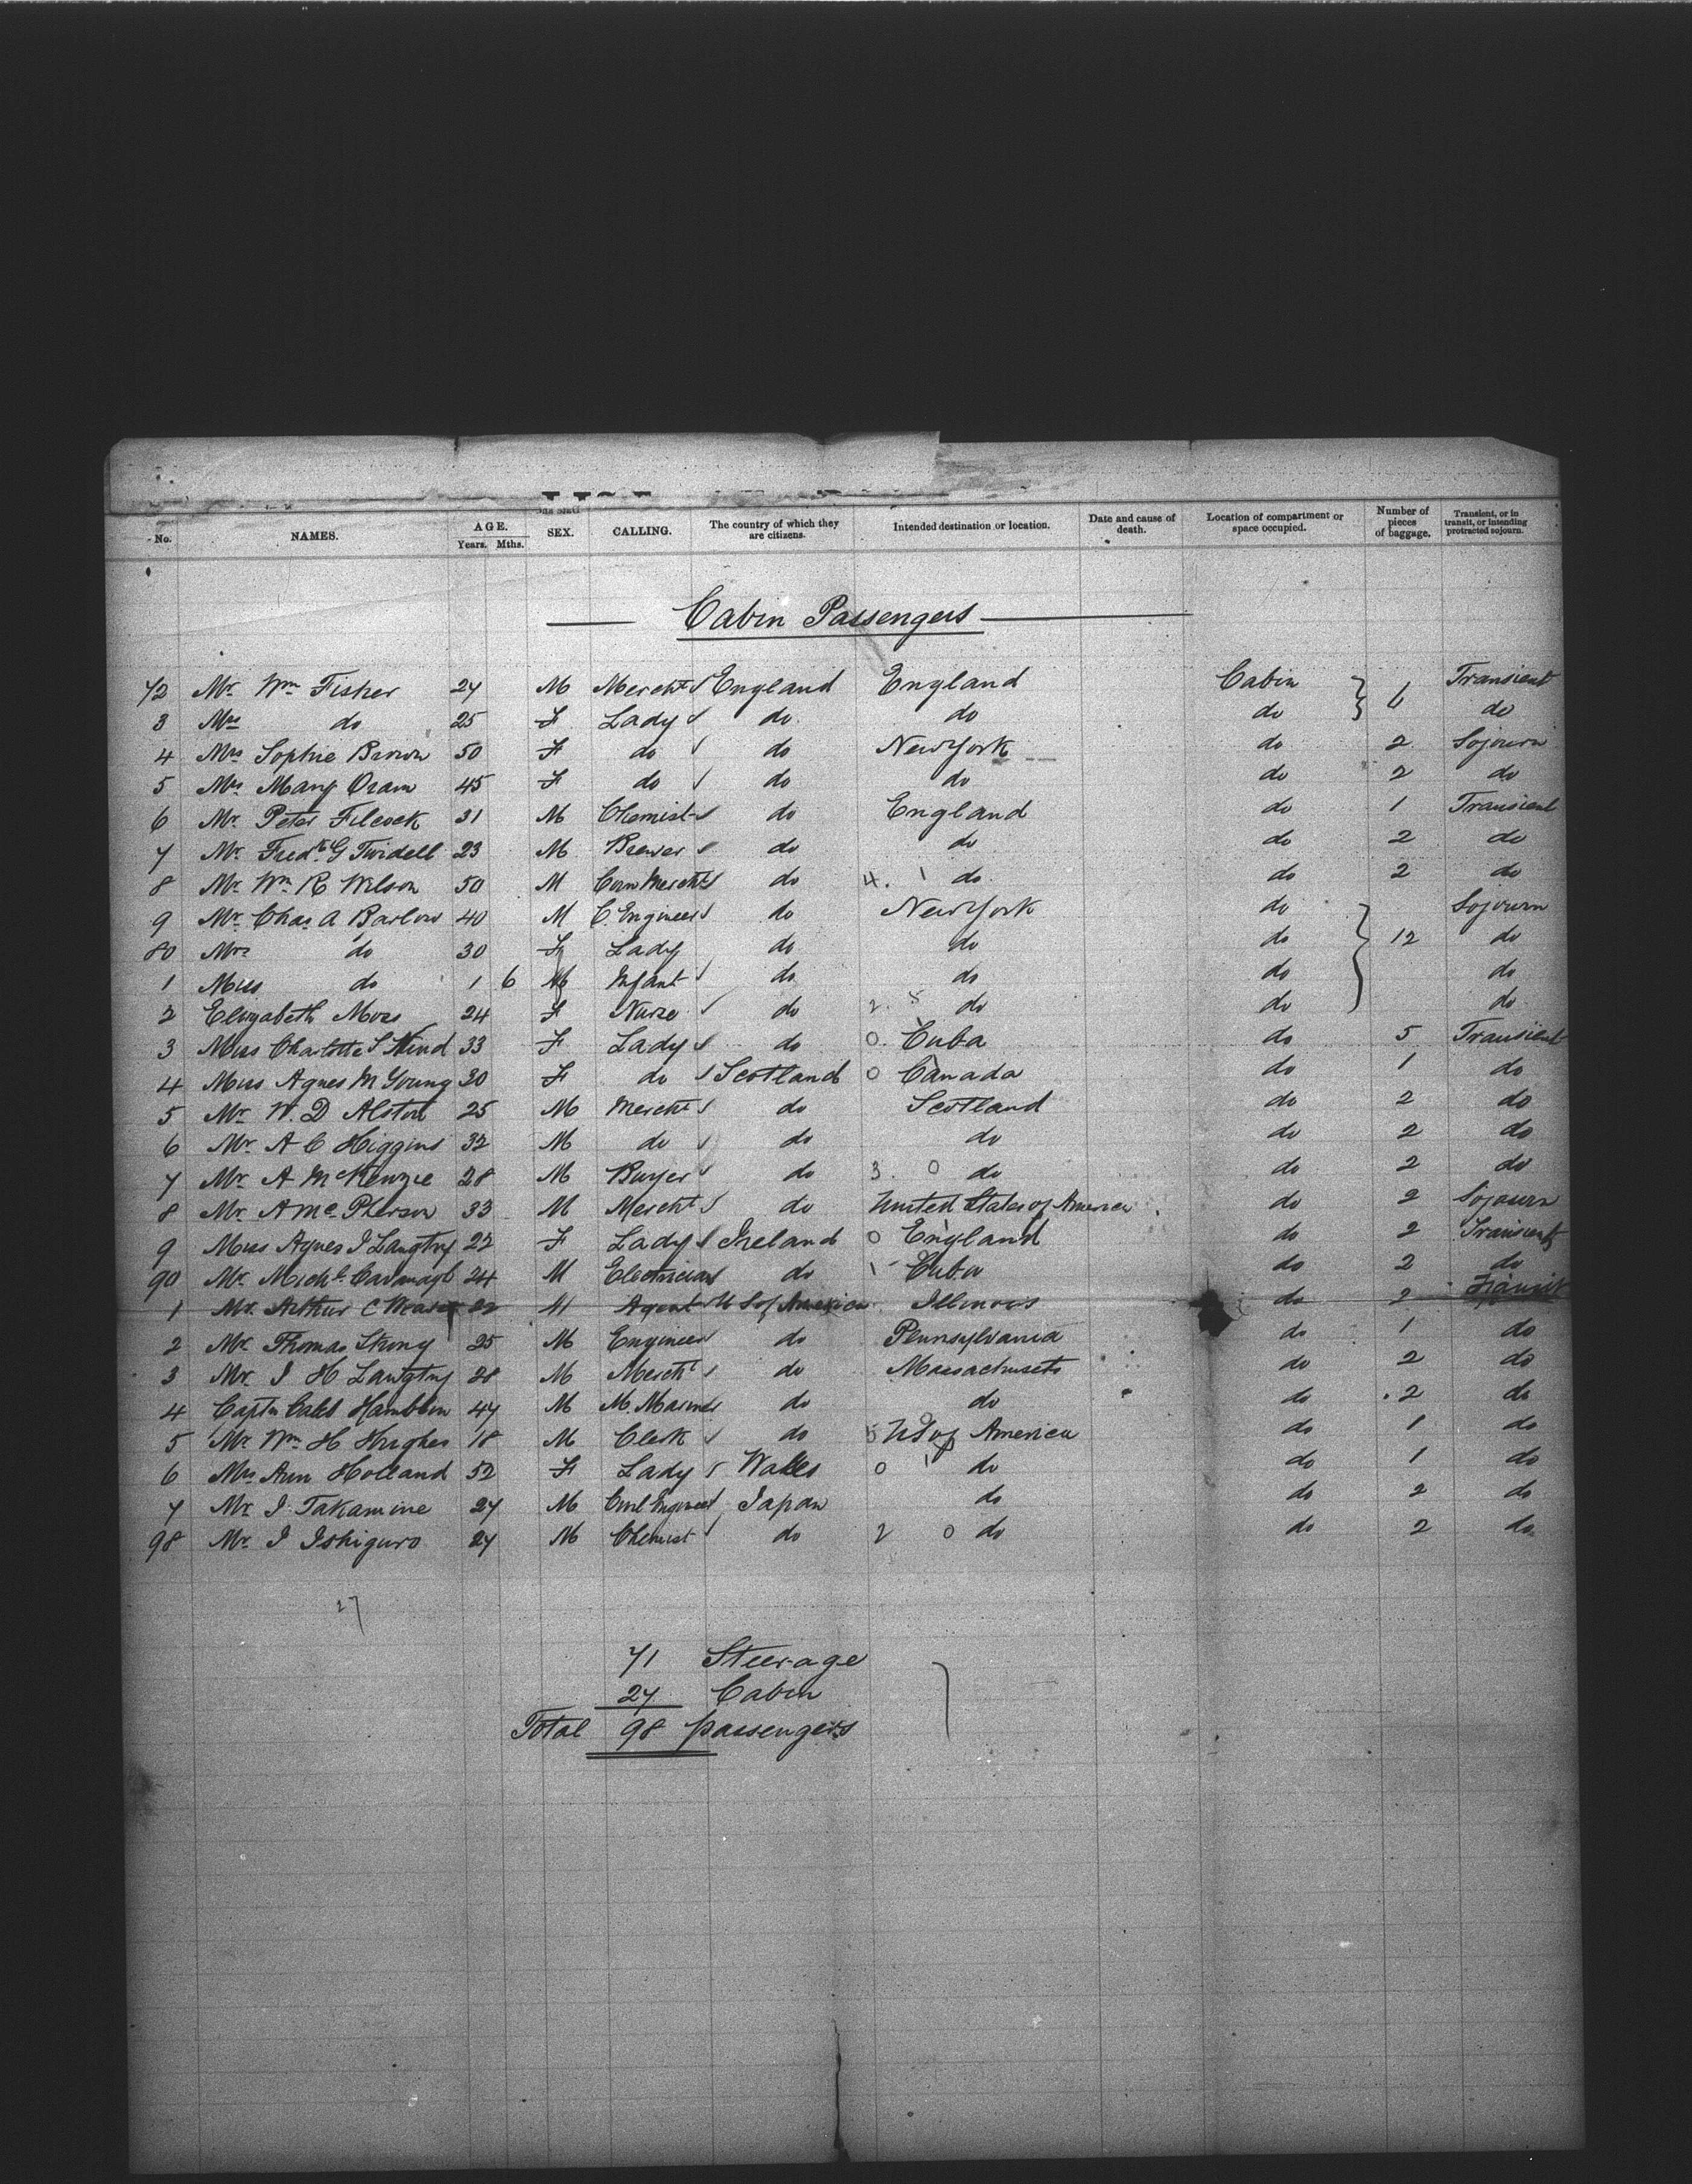 No. NAMES. AGE. Years. Mths. SEX. CALLING. The country of which they are citizens. Intended destination or location. Date and cause of death. Location of compartment or space occupied. Number of pieces of baggage. Transient, or in transit, or intending protracted sojourn.
Cabin Passengers
72 Mr. Wm Fisher 27 M Mercht England England Cabin 6 Transient
3 Mrs do 25 F Lady do do do do
4 Mrs Sophie Brown 50 F do do New York do 2 Sojourn
5 Mrs Mary Oram 45 F do do do do 2 do
6 Mr. Peter Filcock 31 M Chemist do England do 1 Transient
7 Mr. Fredk G Twidell 23 M Brewer do do do 2 do
8 Mr. Wm R Wilson 50 M Corn Mercht do 4. 1 do do 2 do
9 Mr. Chas. A Barlow 40 M C. Engineer do New York do Sojourn
80 Mrs do 30 F Lady do do do 12 do
1 Miss do 1 6 Infant do do do do
2 Elizabeth Moss 24 F Nurse do 2. 5 do do do
3 Miss Charlotte S Hind 33 F Lady do 0. Cuba do 5 Transient
4 Miss Agnes M Young 30 F do Scotland 0 Canada do 1 do
5 Mr. W. D Alston 25 M Mercht do Scotland do 2 do
6 Mr. A C Higgins 32 M do do do do 2 do
7 Mr. A McKenzie 28 M Buyer do 3. 0 do do 2 do
8 Mr. A Mc.Pherson 33 M Mercht do United States of America do 2 Sojourn
9 Miss Agnes J Langtry 22 F Lady Ireland 0 England do 2 Transient
90 Mr. Michl. Cavanagh 24 M Electrician do 1 Cuba do 2 do
1 Mr. Arthur C M Agent U S of America Illinois do 2 Transit
2 Mr. Thomas Strong 25 M Engineer do Pennsylvania do 1 do
3 Mr. J H Langtry 28 M Mercht do Massachusets do 2 do
4 Captn Caleb Hamblin 47 M M. Mariner do do do 2 do
5 Mr. Wm H Hughes 18 M Clerk do 5 US of America do 1 do
6 Mrs Ann Holland 52 F Lady Wales 0 1 do do 1 do
7 Mr. J. Takamine 27 M Civil Engineer Japan do do 2 do
98 Mr. J Ishiguro 27 M Chemist do 2 0 do do 2 do
27
71 Steerage
27 Cabin
Total 98 passengers